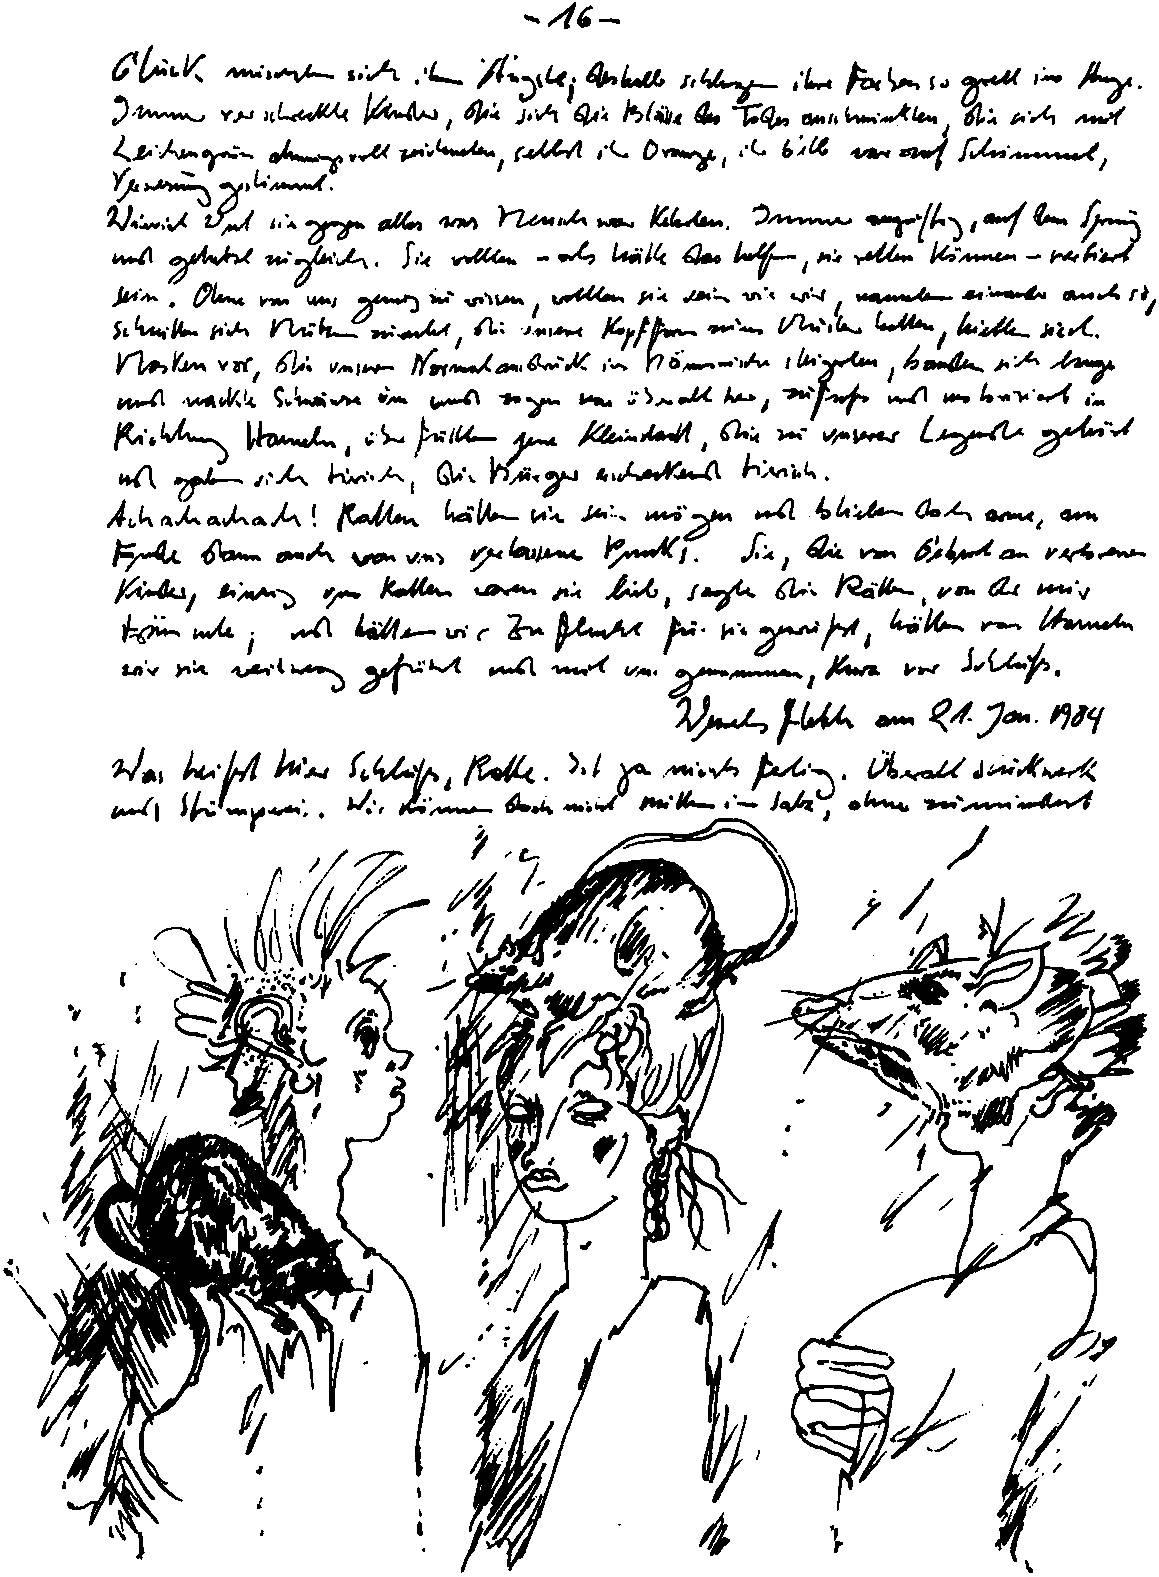 - 16 -
Glück mischten sich ihre Ängste; deshalb schlugen ihre Farben so grell ins Auge.
Immer verschreckte Kinder, die sich die Blässe des Todes anschminkten, die sich mit
Leichengrün ahnungsvoll zeichneten, selbst ihr Orange, ihr Gelb war auf Schimmel,
Verwesung gestimmt.
sie gegen alles was Mensch war Immer auf dem Sprung
und gehetzt zugleich. Sie wollten - als hätte das helfen, sie retten können - vertiert
sein. Ohne von uns genug zu wissen, wollten sie sein wie wir, einander auch so,
schnitten sich Mützen zurecht, die unsere Kopfform zum Muster hatten, hielten sich
Masken vor, die unseren Normalausdruck ins Dämonische steigerten, banden sich lange
und nackte Schwänze um und zogen von überall her, zu Fuß und motorisiert in
Richtung Hameln, überfüllten jene Kleinstadt, die zu unserer Legende gehört
und gaben sich tierisch, die Bürger erschreckend tierisch.
Achachachach! Ratten hätten sie sein mögen und blieben doch arme, am
Ende dann auch von uns verlassene Punks. Sie, die von Geburt an verlorenen
Kinder, einzig von Ratten waren sie lieb, sagte die Rättin, von der mir
träumte; und hätten wir Zuflucht für sie gewußt, hätten von Hameln
wir sie weitweg geführt und mit uns genommen, kurz vor Schluß.
am 21. Jan. 1984
Was heißt hier Schluß, Ratte. Ist ja nichts fertig. Überall Stückwerk
und Stümperei. Wir können doch nicht mitten im Satz, ohne zumindest